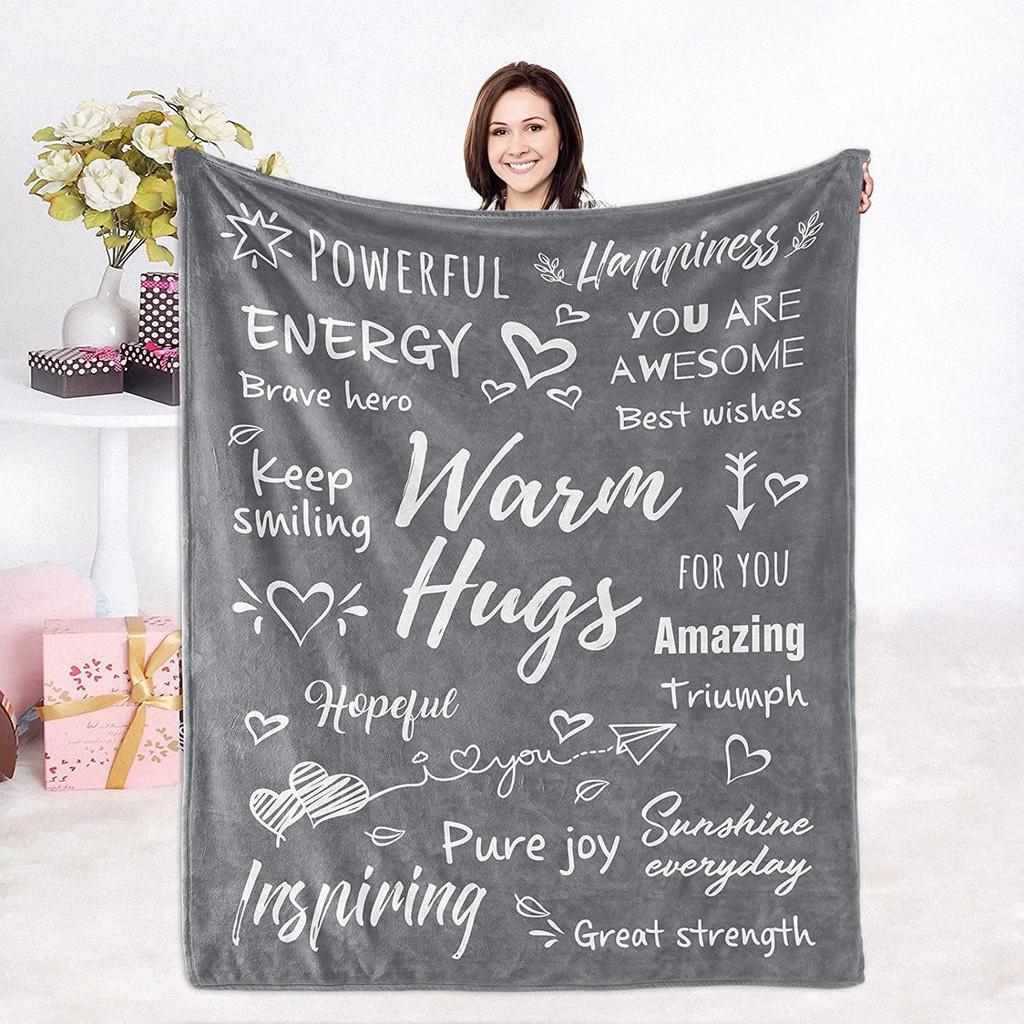 POWERFUL
Happiness
ENERGY
YOU ARE
AWESOME
Brave hero
Best wishes
Keep
smiling
Warm
Hugs
FOR YOU
Amazing
Triumph
Hopeful
i you
Pure joy
Sunshine
everyday
Inspiring
Great strength